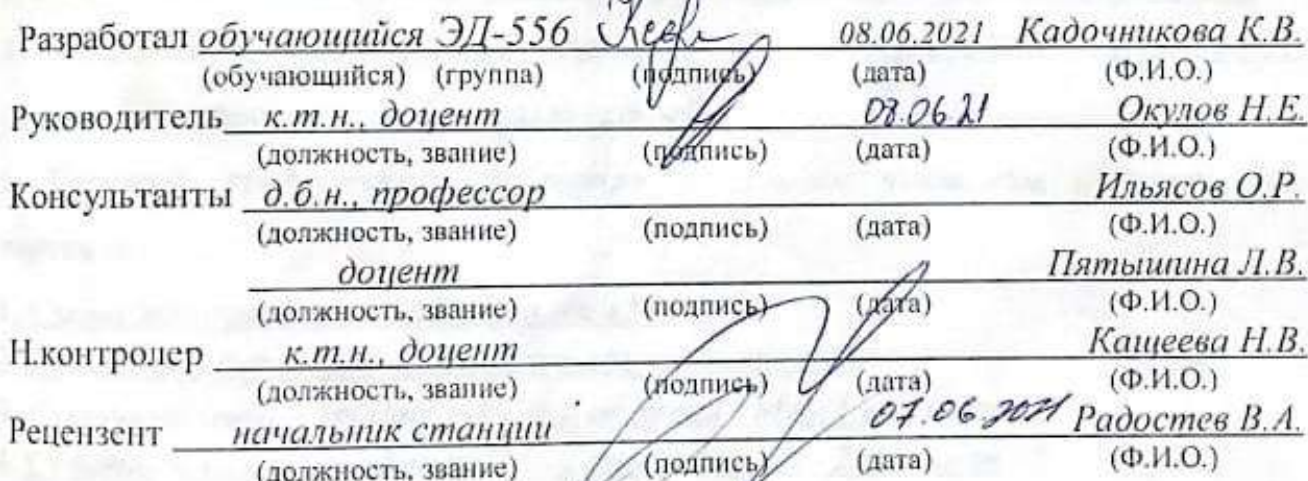 Разработал обучающийся ЭД-556 08.06.2021 Кадочникова К.В.
(обучающийся) (группа) (подпись) (дата) (Ф.И.О.)
Руководитель к.т.н., доцент 08.06.21 Окулов Н.Е.
(должность, звание) (подпись) (дата) (Ф.И.О.)
Консультанты д.б.н., профессор Ильясов О.Р.
(должность, звание) (подпись) (дата) (Ф.И.О.)
доцент Пятышина Л.В.
(должность, звание) (подпись) (дата) (Ф.И.О.)
Н.контролер к.т.н., доцент Кащеева Н.В.
(должность, звание) (подпись) (дата) (Ф.И.О.)
Рецензент начальник станции 07.06.2021 Радостев В.А.
(должность, звание) (подпись) (дата) (Ф.И.О.)